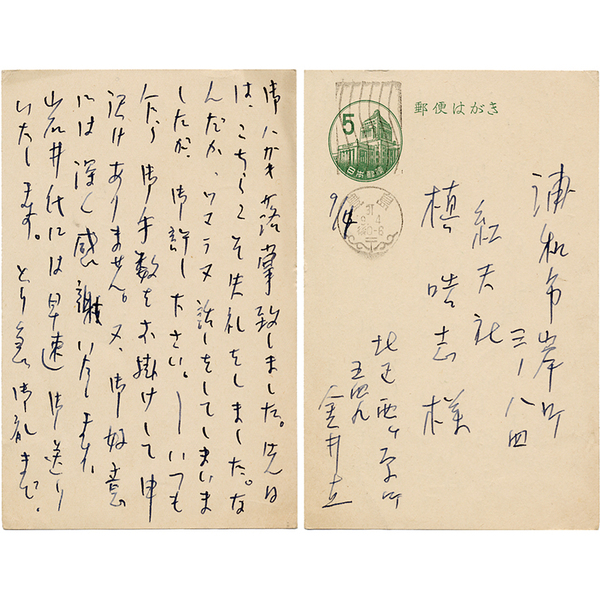 御ハガキ落掌致しました。先日
は、こちらこそ失礼をしました。な
んだか、ツマラヌ話しをしてしまいま
したが、御許し下さい。―いつも
乍ら御手数をお掛けして申
訳けありません。又、御好意
には深く感謝いたします。
岩井氏には早速御送り
いたします。とり急ぎ御礼まで。
郵便はがき
5
日本郵便
豊島
31
9.4
9/4
浦和市岸町
三ノ八四
紅天社
槙晧志様
北区西ヶ原町
金井直